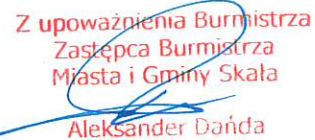 Z upoważnienia Burmistrza
Zastępca Burmistrza
Miasta i Gminy Skała
Aleksander Dańda